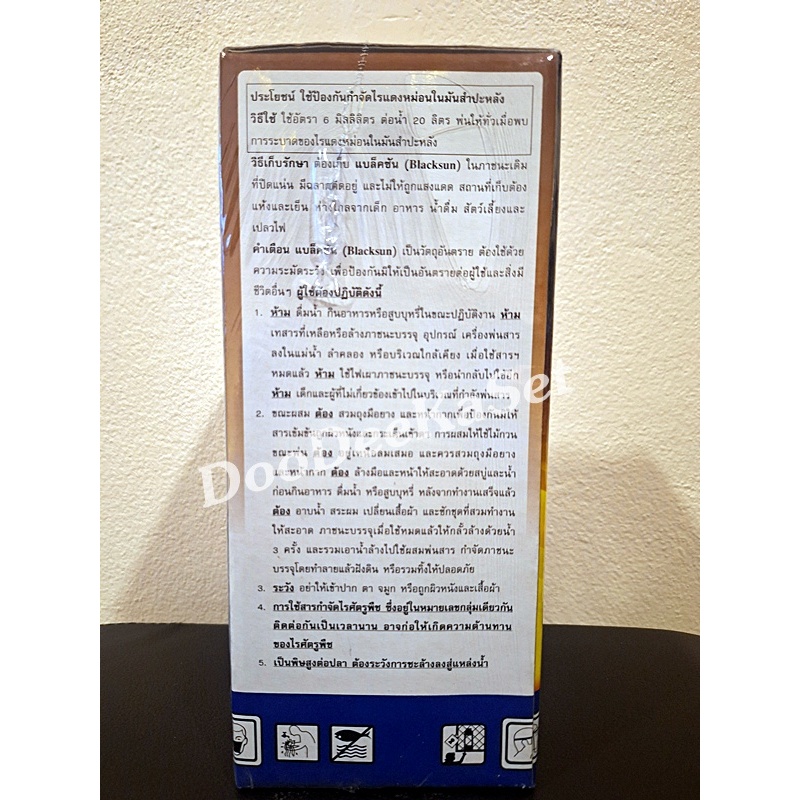 ประโยชน์ ใช้ป้องกันกำจัดไรแดงหม่อนในมันสำปะหลัง
วิธีใช้ ใช้อัตรา 6 มิลลิลิตร ต่อน้ำ 20 ลิตร พ่นให้ทั่วเมื่อพบ
การระบาดของไรแดงหม่อนในมันสำปะหลัง
วิธีเก็บรักษา ต้องเก็บ แบล็คซัน (Blacksun) ในภาชนะเดิม
ที่ปิดแน่น มีฉลากติดอยู่ และไม่ให้ถูกแสงแดด สถานที่เก็บต้อง
แห้งและเย็น ห่างไกลจากเด็ก อาหาร น้ำดื่ม สัตว์เลี้ยงและ
เปลวไฟ
คำเตือน แบล็คซัน (Blacksun) เป็นวัตถุอันตราย ต้องใช้ด้วย
ความระมัดระวัง เพื่อป้องกันมิให้เป็นอันตรายต่อผู้ใช้และสิ่งมี
ชีวิตอื่นๆ ผู้ใช้ต้องปฏิบัติดังนี้
1. ห้าม ดื่มน้ำ กินอาหารหรือสูบบุหรี่ในขณะปฏิบัติงาน ห้าม
เทสารที่เหลือหรือล้างภาชนะบรรจุ อุปกรณ์ เครื่องพ่นสาร
ลงในแม่น้ำ ลำคลอง หรือบริเวณใกล้เคียง เมื่อใช้สารฯ
หมดแล้ว ห้าม ใช้ไฟเผาภาชนะบรรจุ หรือนำกลับไปใช้อีก
ห้าม เด็กและผู้ที่ไม่เกี่ยวข้องเข้าไปในบริเวณที่กำลังพ่นสาร
2. ขณะผสม ต้อง สวมถุงมือยาง และหน้ากากเพื่อป้องกันมิให้
สารเข้มข้นถูกผิวหนังและกระเด็นเข้าตา การผสมให้ใช้ไม้กวน
ขณะพ่น ต้อง อยู่เหนือลมเสมอ และควรสวมถุงมือยาง
และหน้ากาก ต้อง ล้างมือและหน้าให้สะอาดด้วยสบู่และน้ำ
ก่อนกินอาหาร ดื่มน้ำ หรือสูบบุหรี่ หลังจากทำงานเสร็จแล้ว
ต้อง อาบน้ำ สระผม เปลี่ยนเสื้อผ้า และซักชุดที่สวมทำงาน
ให้สะอาด ภาชนะบรรจุเมื่อใช้หมดแล้วให้กลั้วล้างด้วยน้ำ
3 ครั้ง และรวมเอาน้ำล้างไปใช้ผสมพ่นสาร กำจัดภาชนะ
บรรจุโดยทำลายแล้วฝังดิน หรือรวมทิ้งให้ปลอดภัย
3. ระวัง อย่าให้เข้าปาก ตา จมูก หรือถูกผิวหนังและเสื้อผ้า
4. การใช้สารกำจัดไรศัตรูพืช ซึ่งอยู่ในหมายเลขกลุ่มเดียวกัน
ติดต่อกันเป็นเวลานาน อาจก่อให้เกิดความต้านทาน
ของไรศัตรูพืช
5. เป็นพิษสูงต่อปลา ต้องระวังการชะล้างลงสู่แหล่งน้ำ
DooDeeKaSet